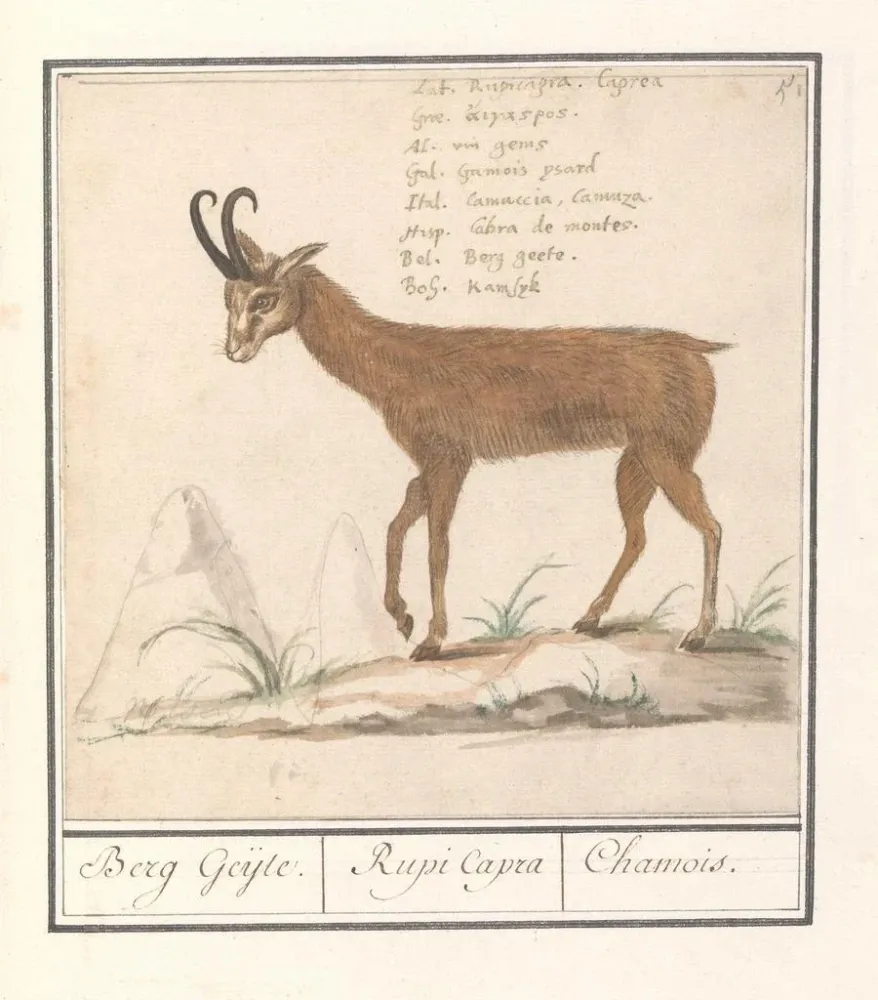 Lat. Rupicapra. Caprea
51
Græ. ἄιγαςρος.
Al. ein gems
Gal. Gamois ysard
Ital. Camuccia, Camuza.
Hisp. Cabra de montes.
Bel. Berg geete.
Boh. Kamsyk
Berg Geÿte.
Rupi Capra
Chamois.